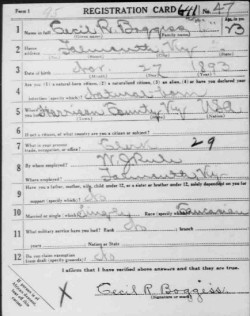 Form 1
REGISTRATION CARD
No. 47
1
Name in full Cecil R. Boggess
(Given name) (Family name)
23
2
Home address Falmouth, Ky
3
Date of birth Nov. 27 1893
(Month) (Day) (Year)
4
Are you (1) a natural-born citizen, (2) a naturalized citizen, (3) an alien, (4) or have you declared your intention (specify which)? Natural born
5
Where were you born? Harrison County, Ky USA
6
If not a citizen, of what country are you a citizen or subject?
7
What is your present trade, occupation, or office? Clerk 29
8
By whom employed?
Where employed? Falmouth, Ky.
9
Have you a father, mother, wife, child under 12, or a sister or brother under 12, solely dependent on you for support (specify which)? No
10
Married or single (which)? Single Race (specify which)? Caucasian
11
What military service have you had? Rank No ; branch
years ; Nation or State
12
Do you claim exemption from draft (specify grounds)? No
I affirm that I have verified above answers and that they are true.
X
Cecil R. Boggess
(Signature or mark)